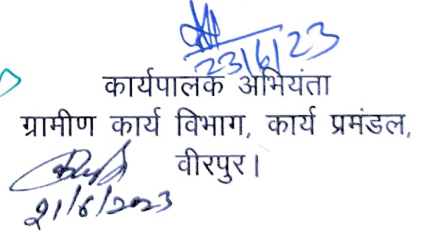 23/6/23
कार्यपालक अभियंता
ग्रामीण कार्य विभाग, कार्य प्रमंडल,
वीरपुर।
21/6/2023